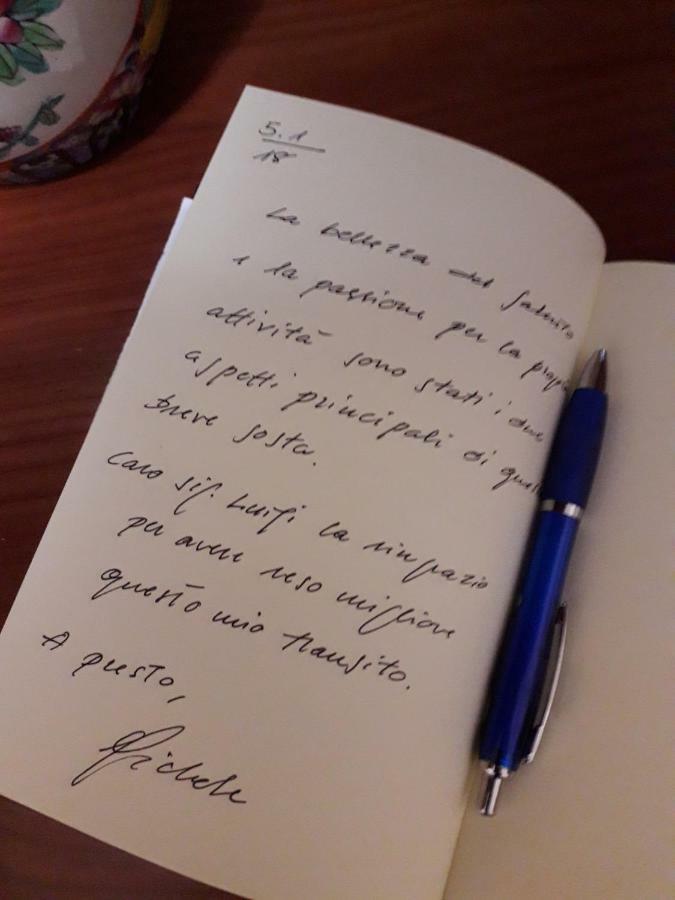 5.1
18
La bellezza del Salento
e la passione per la propria
attività sono stati i due
aspetti principali di
breve sosta.
Caro sig. Luigi la ringrazio
per avere reso migliore
questo mio transito.
A presto,
Michele